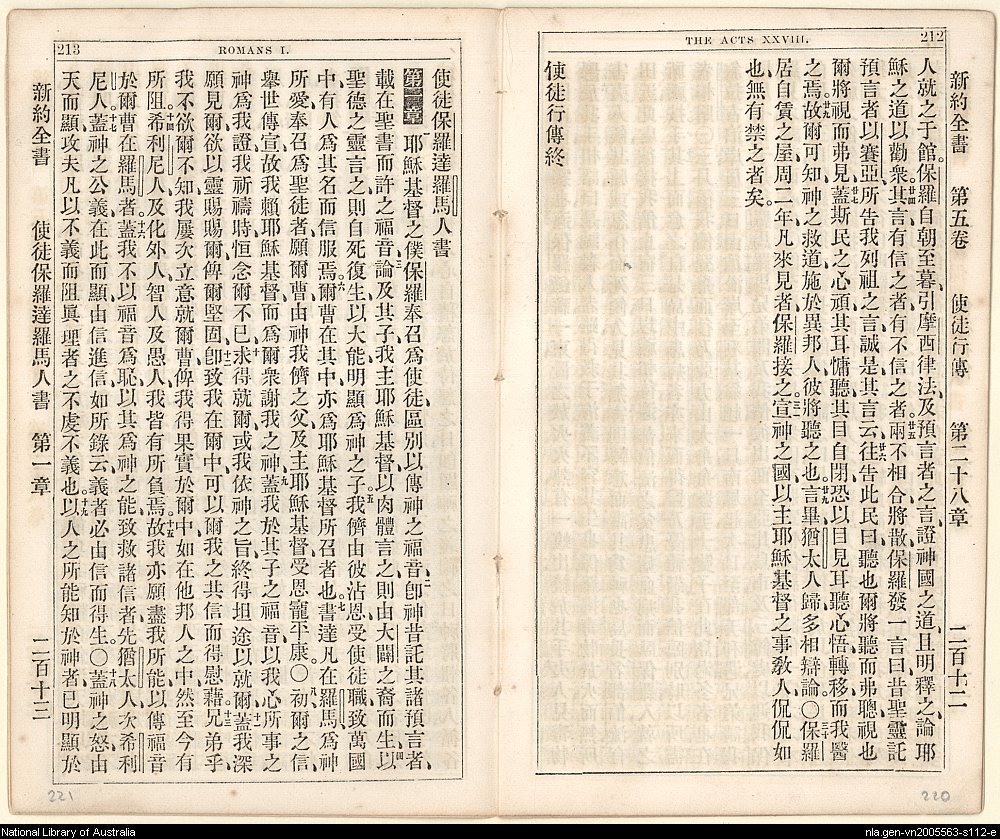 THE ACTS XXVIII. 212
新約全書 第五卷 使徒行傳 第二十八章 二百十二
人就之于館、保羅自朝至暮、引摩西律法及預言者之言、證神國之道、且明釋之、論耶
穌之道以勸衆、廿四其言有信之者、有不信之者、廿五兩不相合、將散、保羅發一言曰、昔聖靈託
預言者以賽亞、所告我列祖之言誠是、廿六其言云、往告此民曰、聽也爾將聽而弗聰、視也
爾將視而弗見、廿七蓋斯民之心頑、其耳慵聽、其目自閉、恐以目見耳聽心悟轉移、而我醫
之焉、廿八故爾可知神之救道、施於異邦人、彼將聽之也、廿九言畢、猶太人歸、多相辯論。〇三十保羅
居自賃之屋、周二年、凡來見者、保羅接之、三一宣神之國、以主耶穌基督之事敎人、侃侃如
也、無有禁之者矣。
使徒行傳終
213 ROMANS I.
使徒保羅達羅馬人書
第一章 一耶穌基督之僕保羅、奉召爲使徒、區別以傳神之福音、二卽神昔託其諸預言者、
載在聖書而許之福音、三論及其子、我主耶穌基督、以肉體言之、則由大闢之裔而生、四以
聖德之靈言之、則自死復生、以大能明顯爲神之子、五我儕由彼沾恩、受使徒職、致萬國
中有人爲其名而信服焉、六爾曹在其中、亦爲耶穌基督所召者也、七書達凡在羅馬、爲神
所愛、奉召爲聖徒者、願爾曹由神我儕之父、及主耶穌基督、受恩寵平康〇八初爾之信、
舉世傳宣、故我賴耶穌基督、而爲爾衆謝我之神、九蓋我於其子之福音、以我心所事之
神、爲我證我祈禱時、恒念爾不已、十求得就爾、或我依神之旨、終得坦途以就爾、十一蓋我深
願見爾、欲以靈賜賜爾、俾爾堅固、十二卽致我在爾中、可以爾我之共信、而得慰藉、十三兄弟乎、
我不欲爾不知、我屢次立意就爾曹、俾我得果實於爾中、如在他邦人之中然、至今有
所阻、十四希利尼人及化外人、智人及愚人、我皆有所負焉、十五故我亦願盡我所能、以傳福音
於爾曹在羅馬者、十六蓋我不以福音爲恥、以其爲神之能、致救諸信者、先猶太人、次希利
尼人、十七蓋神之公義、在此而顯、由信進信、如所錄云、義者必由信而得生。〇十八蓋神之怒、由
天而顯、攻夫凡以不義而阻眞理者之不虔不義也、十九以人之所能知於神者、已明顯於
新約全書 使徒保羅達羅馬人書 第一章 二百十三
221
220
National Library of Australia
nla.gen-vn2005563-s112-e